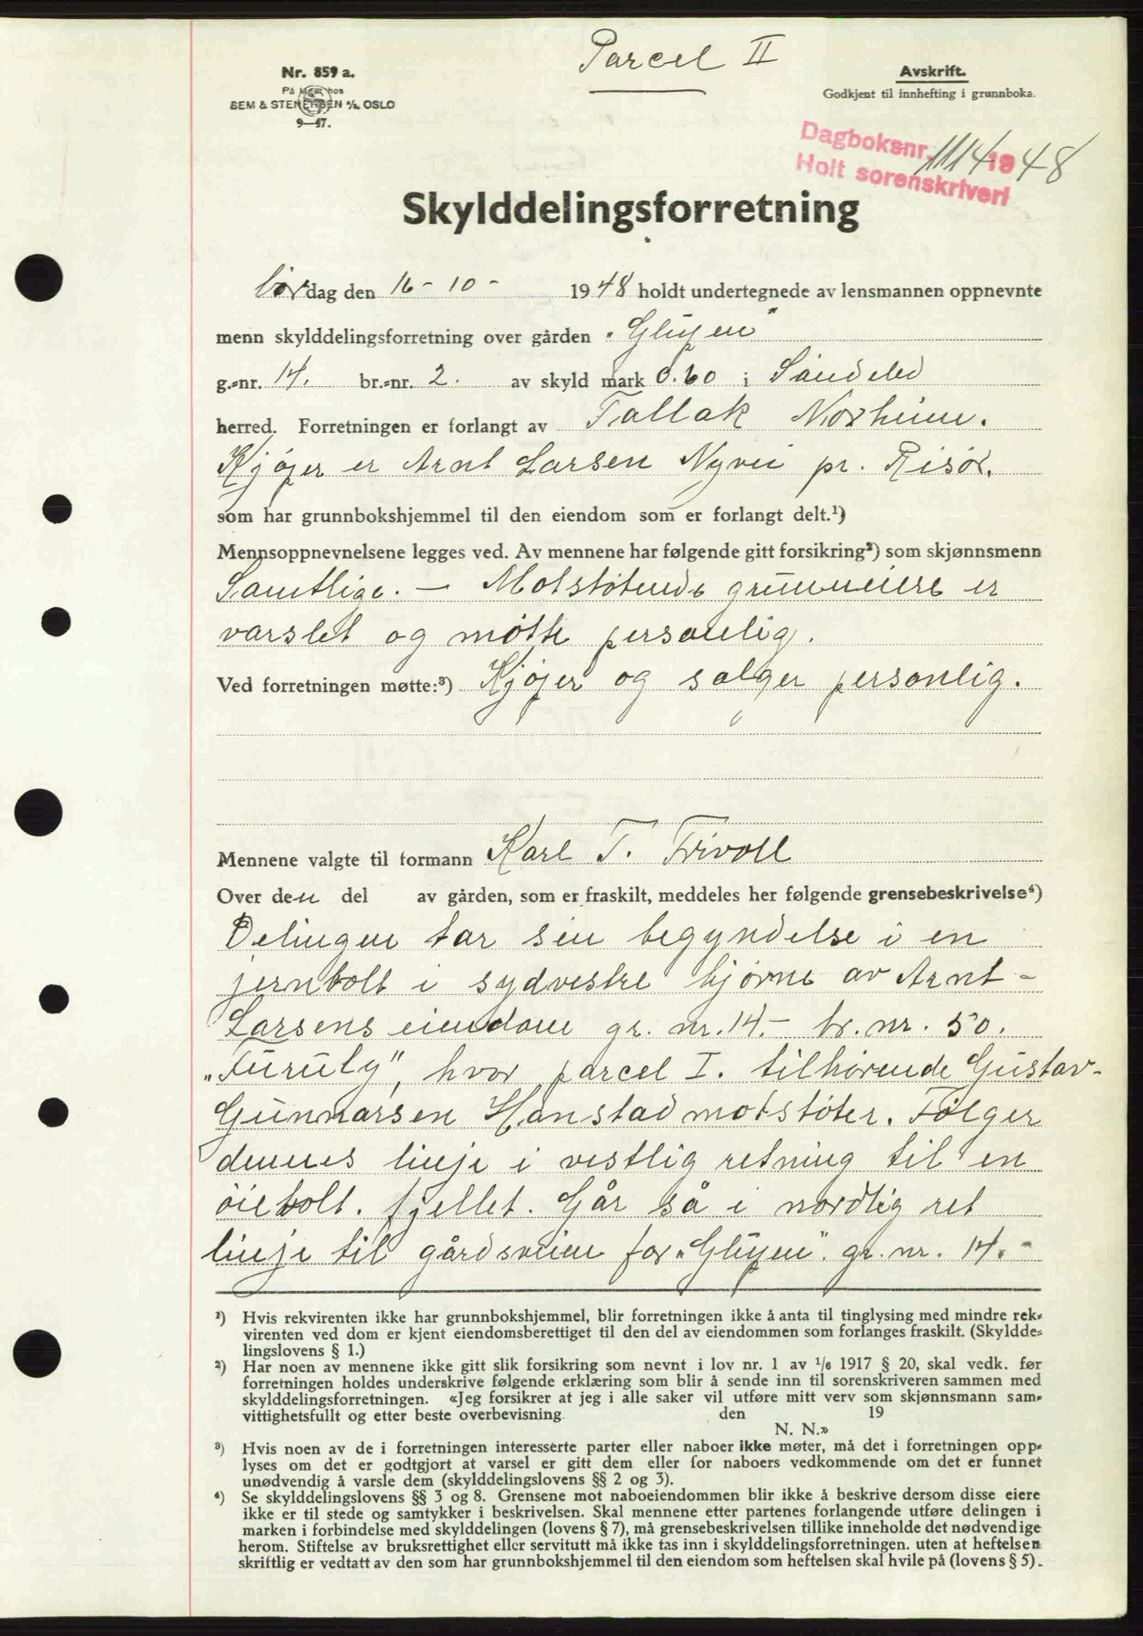 Parcel II
Nr. 859 a.
På lager hos
SEM & STENERSEN A/S, OSLO
9—47.
Avskrift.
Godkjent til innhefting i grunnboka.
Dagboksnr. 1114 1948
Holt sorenskriveri
Skylddelingsforretning
lørdag den 16 - 10 - 1948 holdt undertegnede av lensmannen oppnevnte
menn skylddelingsforretning over gården "Glijen"
g.-nr. 14. br.-nr. 2. av skyld mark 0.60 i Søndeled
herred. Forretningen er forlangt av Tallak Norheim.
Kjøper er Arnt Larsen Nyvei pr. Risør.
som har grunnbokshjemmel til den eiendom som er forlangt delt.¹)
Mennsoppnevnelsene legges ved. Av mennene har følgende gitt forsikring²) som skjønnsmenn
Samtlige. — Motstøtende grunneiere er
varslet og møtte personlig.
Ved forretningen møtte:³) Kjøper og selger personlig.
Mennene valgte til formann Karl T. Frivoll
Over den del av gården, som er fraskilt, meddeles her følgende grensebeskrivelse⁴)
Delingen tar sin begyndelse i en
jernbolt i sydvestre hjørne av Arnt -
Larsens eiendom gr. nr. 14. - br. nr. 50.
„Furuly", hvor parcel I. tilhørende Gustav-
Gunnarsen Hanstad motstøter. Følger
dennes linje i vestlig retning til en
øiebolt. fjellet. Går så i nordlig ret
linje til gårdsveien for „Glijen". gr. nr. 14. -
¹) Hvis rekvirenten ikke har grunnbokshjemmel, blir forretningen ikke å anta til tinglysing med mindre rek-
virenten ved dom er kjent eiendomsberettiget til den del av eiendommen som forlanges fraskilt. (Skyldde-
lingslovens § 1.)
²) Har noen av mennene ikke gitt slik forsikring som nevnt i lov nr. 1 av ¹/₆ 1917 § 20, skal vedk. før
forretningen holdes underskrive følgende erklæring som blir å sende inn til sorenskriveren sammen med
skylddelingsforretningen. «Jeg forsikrer at jeg i alle saker vil utføre mitt verv som skjønnsmann sam-
vittighetsfullt og etter beste overbevisning. den 19
N. N.»
³) Hvis noen av de i forretningen interesserte parter eller naboer ikke møter, må det i forretningen opp-
lyses om det er godtgjort at varsel er gitt dem eller for naboers vedkommende om det er funnet
unødvendig å varsle dem (skylddelingslovens §§ 2 og 3).
⁴) Se skylddelingslovens §§ 3 og 8. Grensene mot naboeiendommen blir ikke å beskrive dersom disse eiere
ikke er til stede og samtykker i beskrivelsen. Skal mennene etter partenes forlangende utføre delingen i
marken i forbindelse med skylddelingen (lovens § 7), må grensebeskrivelsen tillike inneholde det nødvendige
herom. Stiftelse av bruksrettighet eller servitutt må ikke tas inn i skylddelingsforretningen. uten at heftelsen
skriftlig er vedtatt av den som har grunnbokshjemmel til den eiendom som heftelsen skal hvile på (lovens § 5).